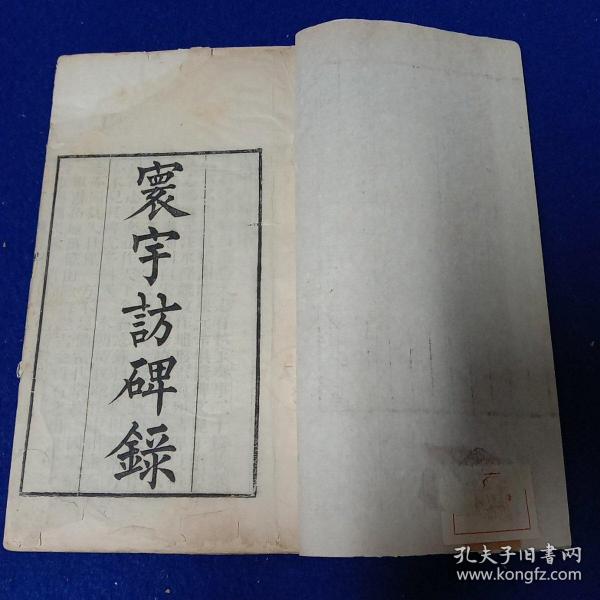 寰宇訪碑錄
孔夫子旧書网
www.kongfz.com